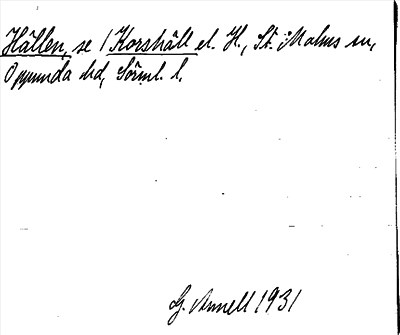 Hällen, se 1 Korshäll el. H., St. Malms sn,
Oppunda hd, Sörml. l.
G. Annell 1931